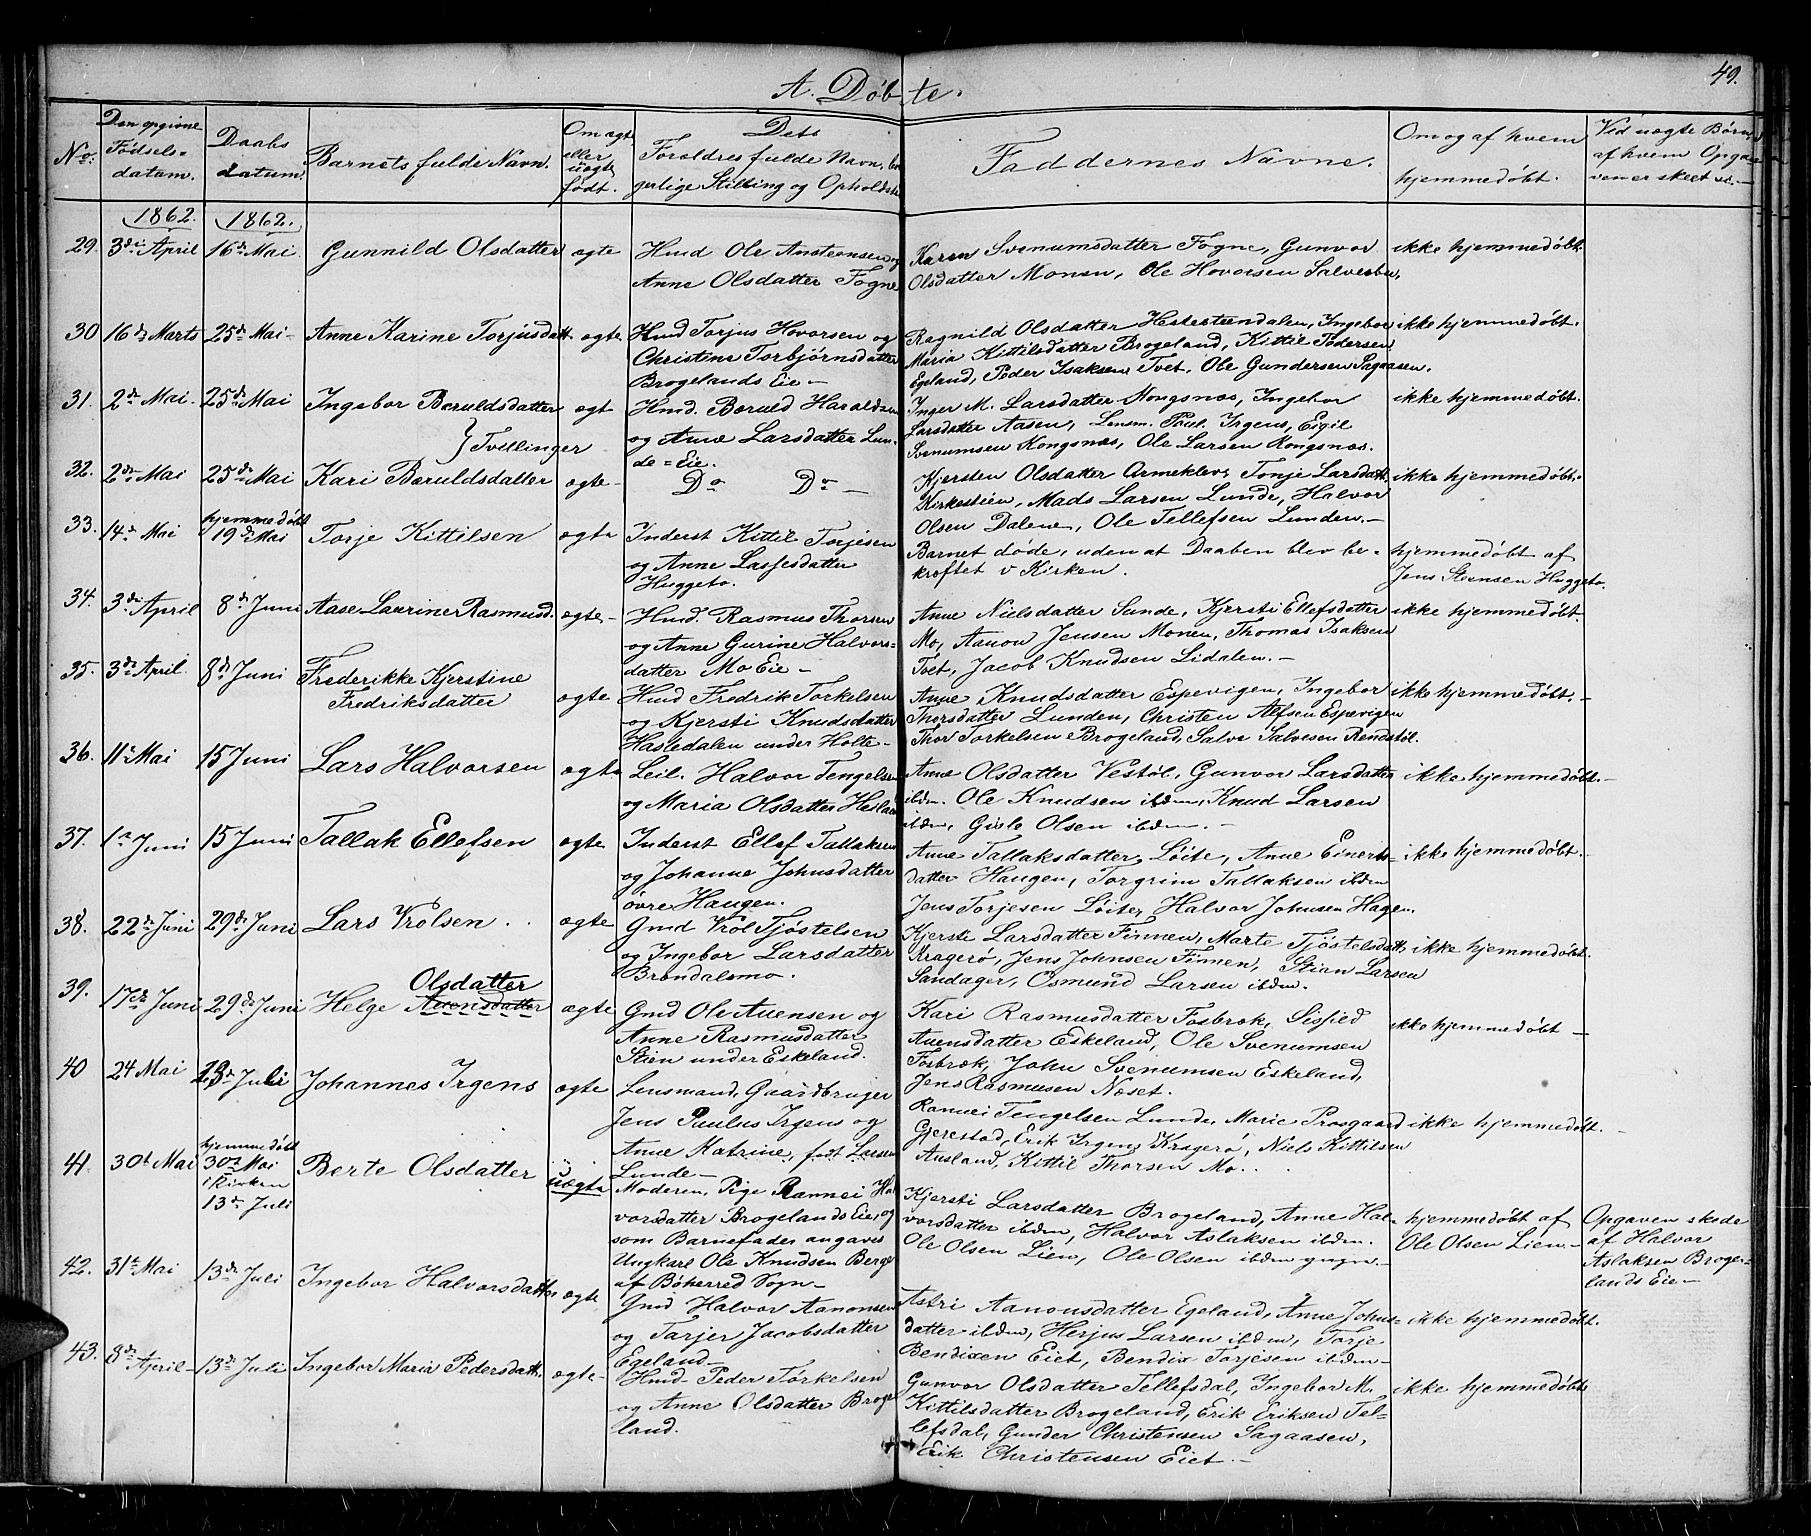 A. Døbte.
49.
No. Den opgivne Fødselsdatum. Daabsdatum. Barnets fulde Navn. Om ægte eller uægte født. Dets Forældres fulde Navn, borgerlige Stilling og Opholdsted Faddernes Navne. Om og af hvem hjemmedøbt. Ved uægte Børn af hvem Opgaven er skeet
1862. 1862.
29. 3die April 16de Mai Gunnild Olsdatter ægte Hmd Ole Ansteensen og
Anne Olsdatter Fogne
Karen Svenumsdatter Fogne, Gunvor
Olsdatter Monen, Ole Hovorsen Salvesbu,
ikke hjemmedøbt
30 16de Marts 25de Mai Anne Karine Torjusdatt. ægte Hmd Torjus Hovorsen og
Christine Torbjørnsdatter
Brogelands Eie
Ragnild Olsdatter Hestesteendalen, Ingebor
Maria Kittilsdatter Brogeland, Kittil Pedersen
Egeland, Peder Isaksen Tvet, Ole Gundersen Sagaasen.
ikke hjemmedøbt.
31. 2de Mai 25de Mai Ingebor Beruldsdatter ægte Hmd. Beruld Haroldsen
} Tvillinger
og Anne Larsdatter Lun-
de=Eie.
Inger M. Larsdatter Kongsnæs, Ingebor
Larsdatter Aasen, Lensm. Paul Irgens, Eigil
Svenumsen Kongsnæs, Ole Larsen Kongsnæs.
ikke hjemmedøbt.
32. 2de Mai 25de Mai Kari Beruldsdatter ægte Do Do
Kjersten Olsdatter Ormeklev, Tonje Larsdatt.
Kirkestien, Mads Larsen Lunde, Halvor
Olsen Dalene, Ole Tellefsen Lunden.
ikke hjemmedøbt.
33. 14de Mai hjemmedøbt 19de Mai Torje Kittilsen ægte Inderst Kittil Torjesen
og Anne Lassesdatter
Huggeto.
Barnet døde, uden at Daaben blev be-
kræftet v Kirken.
hjemmedøbt af
Jens Steensen Huggeto.
34. 3die April 8de Juni Aase Laurine Rasmusd. ægte Hmd. Rasmus Thorsen
og Anne Gurine Halvors-
datter Mo Eie
Anne Nielsdatter Sunde, Kjersti Ellefsdatter
Mo, Aanon Jensen Monen, Thomas Isaksen
Tvet, Jacob Knudsen Lidalen.
ikke hjemmedøbt.
35. 3die April 8de Juni Frederikke Kjerstine
Fredriksdatter ægte Hmd Fredrik Torkelsen
og Kjersti Knudsdatter
Hasledalen under Holte
Anne Knudsdatter Espevigen, Ingebor
Thorsdatter Lunden, Christen Alfsen Espevigen
Thor Torkelsen Brogeland, Salve Salvesen Rendstöl.
ikke hjemmedøbt.
36. 11te Mai 15 Juni Lars Halvorsen ægte Leil. Halvor Tengelsen
og Maria Olsdatter
Anne Olsdatter Vestöl, Gunvor Larsdatter
ibdm. Ole Knudsen ibdem, Knud Larsen
ibdm, Gisle Olsen ibdem.
ikke hjemmedøbt.
37. 1ste Juni 15 Juni Tallak Ellefsen ægte Inderst Ellef Tallaksen
og Johanne Johnsdatter
øvre Haugen.
Anne Tallaksdatter Löite, Anne Einerts-
datter Haugen, Torgrim Tallaksen ibdem
Jens Torjesen Löite, Halvor Johnsen Hagen.
ikke hjemmedøbt.
38. 22de Juni 29de Juni Lars Vrolsen ægte Gmd Vrol Tjøstelsen
og Ingebor Larsdatter
Brøndalsmo.
Kjersti Larsdatter Finnen, Marte Tjöstelsdatt.
Kragerø, Jens Johnsen Finnen, Stian Larsen
Sandager, Osmund Larsen ibdm.
ikke hjemmedøbt.
39. 17de Juni 29de Juni Helge Olsdatter Auensdatter ægte Gmd Ole Auensen og
Anne Rasmusdatter
Stien under Eskeland.
Kari Rasmusdatter Fosbræk, Sissied
Auensdatter Eskeland, Ole Svenumsen
Fosbræk, John Svenumsen Eskeland,
Jens Rasmusen Næset.
ikke hjemmedøbt
40 24 Mai 13de Juli Johannes Irgens ægte Lensmand, Gaardbruger
Jens Paulus Irgens og
Anne Katrine, født Larsen
Lunde
Rannei Tengelsen Lunde, Marie Prosgaard
Gjerestad, Erik Irgens Kragerö, Niels Kittilsen
Ausland, Kittil Thorsen Mo.
ikke hjemmedøbt.
41. 30te Mai hjemmedøbt 30te Mai i Kirken 13de Juli Berte Olsdatter uægte Moderen, Pige Rannei Hal-
vorsdatter Brogelands Eie, og
som Barnefader angaves
Ungkarl Ole Knudsen Berge
af Böherred Sogn
Kjersti Larsdatter Brogeland, Anne Hal-
vorsdatter ibdem, Halvor Aslaksen ibdem.
Ole Olsen Lien, Ole Olsen ibdem yngre.
hjemmedøbt af
Ole Olsen Lien.
Opgaven skede
af Halvor
Aslaksen Broge-
lands Eie
42. 31te Mai 13de Juli Ingebor Halvorsdatter ægte Gmd Halvor Aanonsen
og Tarjer Jacobsdatter
Egeland
Astri Aanonsdatter Egeland, Anne Johns-
datter ibdem, Herjus Larsen ibdem, Torje
Bendixen Eiet, Bendix Torjesen ibdem
ikke hjemmedøbt.
43. 8de April 13de Juli Ingebor Maria Pedersdatt. ægte Hmd Peder Torkelsen
og Anne Olsdatter Broge
land.
Gunvor Olsdatter Tellefsdal, Ingebor M.
Kittilsdatter Brogeland, Erik Eriksen Tel-
lefsdal, Gunder Christensen Sagaasen,
Erik Christensen Eiet.
ikke hjemmedøbt